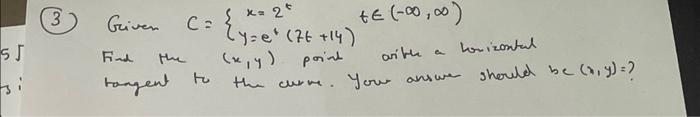 ③ Given C = { x = 2^t t ∈ (-∞, ∞)
y = e^t (7t + 14)
5 Find the (x, y) point with a horizontal
tangent to the curve. Your answer should be (x, y) = ?